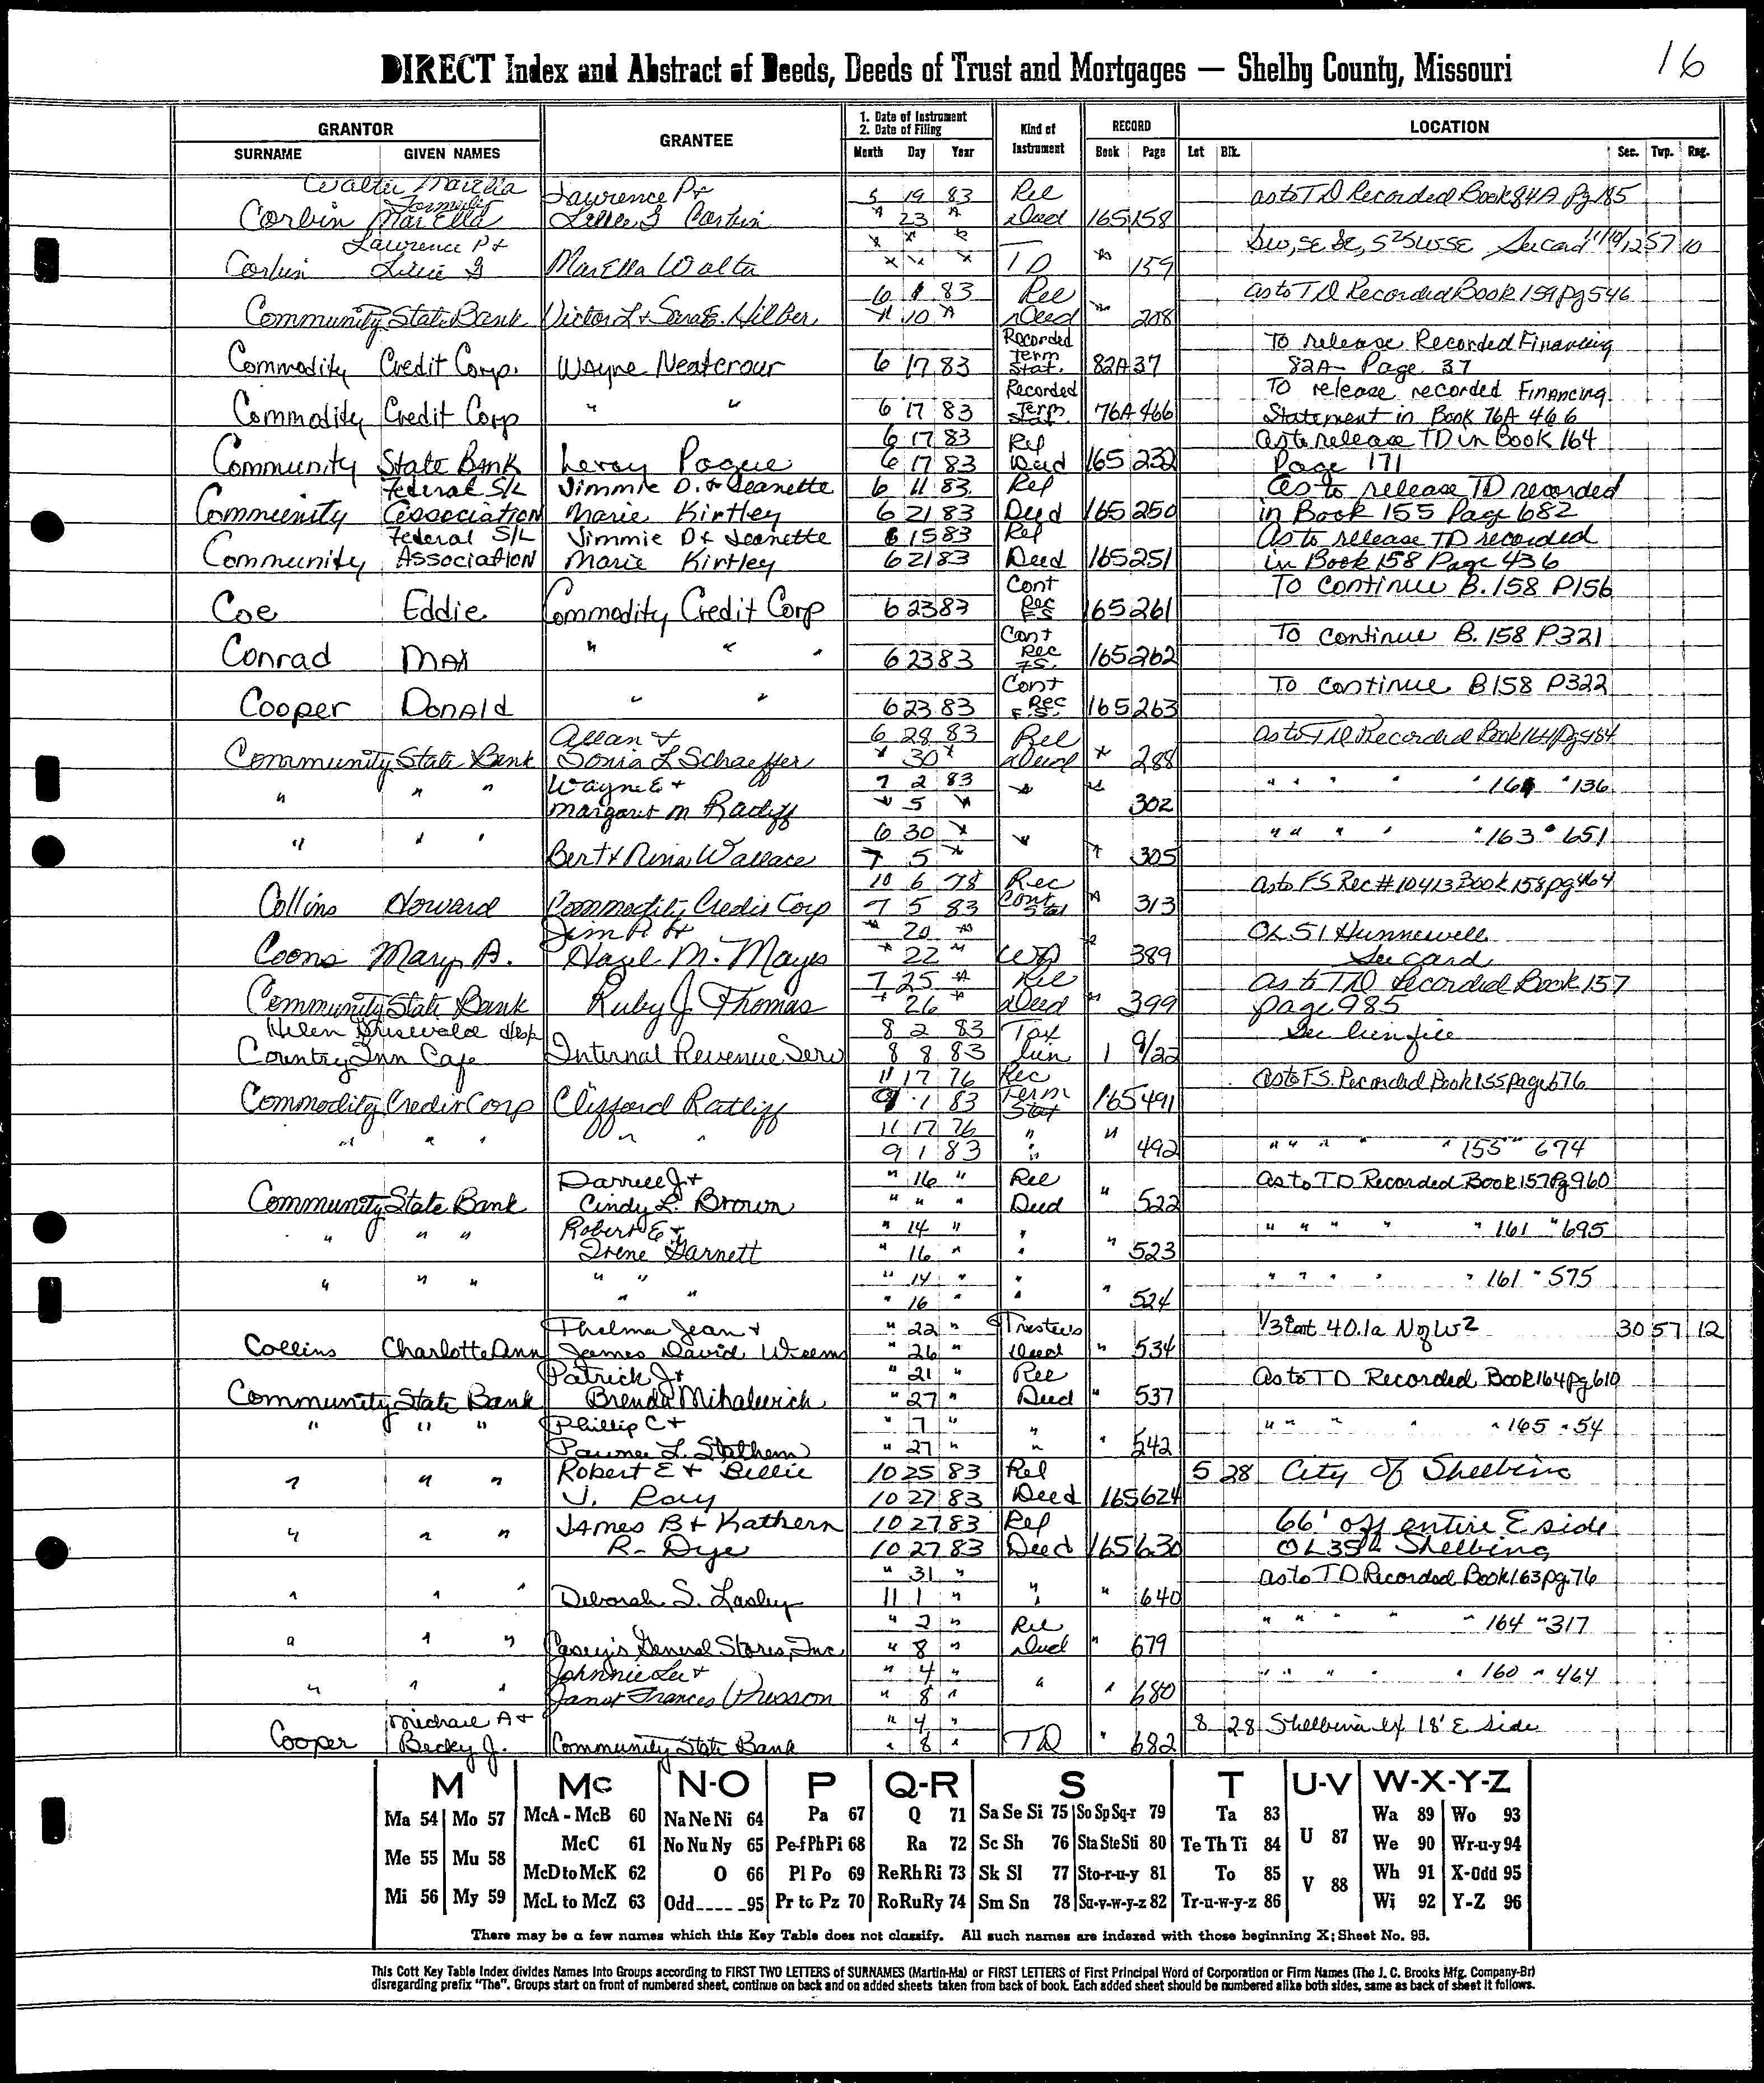 16
DIRECT Index and Abstract of Deeds, Deeds of Trust and Mortgages — Shelby County, Missouri
GRANTOR GRANTEE 1. Date of Instrument 2. Date of Filing Kind of Instrument RECORD LOCATION
SURNAME GIVEN NAMES Month Day Year Book Page Lot Blk. Sec. Twp. Rng.
Walter Marella Lawrence P + 5 19 83 Rel as to TD Recorded Book 84A Pg 185
Corbin formerly MarElla Lillie G Corbin " 23 " Deed 165 158
Lawrence P + " " " SW, SE SE, S2SWSE See card 12 57 10
Corbin Lillie G MarElla Walter " " " TD " 159
6 1 83 Rel as to TD Recorded Book 159 pg 546
Community State Bank Victor L + Sara E. Hilber " 10 " Deed " 208
Recorded To release Recorded Financing
Commodity Credit Corp. Wayne Neatcrour 6 17 83 Term Stat. 82A 37 82A- Page 37
Recorded To release recorded Financing
Commodity Credit Corp " " 6 17 83 Term Stat. 76A 466 Statement in Book 76A 466
6 17 83 Rel as to release TD in Book 164
Community State Bank Leroy Pogue 6 17 83 Deed 165 232 Page 171
Federal S/L Jimmie D. + Jeanette 6 11 83 Rel As to release TD recorded
Community Association Marie Kirtley 6 21 83 Deed 165 250 in Book 155 Page 682
Federal S/L Jimmie D + Jeanette 6 15 83 Rel As to release TD recorded
Community Association Marie Kirtley 6 21 83 Deed 165 251 in Book 158 Page 436
Cont To continue B. 158 P156
Coe Eddie Commodity Credit Corp 6 23 83 Rec F.S 165 261
Cont To continue B. 158 P321
Conrad Max " " " 6 23 83 Rec F.S. 165 262
Cont To continue B158 P322
Cooper Donald " " 6 23 83 Rec F.S. 165 263
Allan + 6 28 83 Rel as to TD Recorded Book 164 pg 484
Community State Bank Sonia L Schaeffer " 30 " Deed " 288
" " " Wayne E + 7 2 83 " " " " " " " 161 " 136
Margaret M Racliff " 5 " 302
" " " 6 30 " " " " " " " 163 " 651
Bert + Nina Wallace 7 5 " " 305
10 6 78 Rec as to FS Rec # 10413 Book 158 pg 464
Collins Howard Commodity Credit Corp 7 5 83 Cont Stat " 313
Jim R. + " 20 " OL 51 Hunnewell
Coons Mary A. Hazel M. Mayes " 22 " WD " 389 See card
7 25 " Rel As to TD Recorded Book 157
Community State Bank Ruby J Thomas " 26 " Deed " 399 page 985
Helen Griswold dba 8 2 83 Tax See lien file
Country Inn Cafe Internal Revenue Serv 8 8 83 Lien 1 9/22
11 17 76 Rec as to F.S. Recorded Book 155 page 676
Commodity Credit Corp Clifford Ratliff 9 1 83 Term Stat 165 491
11 17 76 " "
" " " " " 9 1 83 " 492 " " " " " 155 " 674
Darrell J + " 16 " Rel as to TD Recorded Book 157 Pg 960
Community State Bank Cindy L. Brown " " " Deed " 522
" " " Robert E + " 14 " " " " " " " 161 " 695
Irene Garnett " 16 " " " 523
" " " " " " 14 " " " " " " " 161 " 575
" " " 16 " " " 524
Thelma Jean + " 22 " Trustees 1/3 int 40.1a N of W2 30 57 12
Collins Charlotte Ann James David Weems " 26 " Deed " 534
Patrick J + " 21 " Rel as to TD Recorded Book 164 pg 610
Community State Bank Brenda Mihalevich " 27 " Deed " 537
" " " Phillip C + " 7 " " " " " " " 165 " 54
L. Stathem " 27 " " " 542
" " " Robert E + Billie 10 25 83 Rel 5 28 City of Shelbina
J. Ray 10 27 83 Deed 165 624
" " " James B + Kathern 10 27 83 Rel 66' off entire E side
R. Dye 10 27 83 Deed 165 630 OL 35 Shelbina
" 31 " as to TD Recorded Book 163 pg. 76
" " " Deborah S. Lasley 11 1 " " " 640
" 2 " Rel " " " " " 164 " 317
" " " Casey's General Stores, Inc. " 8 " Deed " 679
Johnnie Lee + " 4 " " " " " " 160 " 464
" " " Janet Frances Presson " 8 " " " 680
Michael A + " 4 " 8 28 Shelbina ex 18' E side
Cooper Becky J. Community State Bank " 8 " TD " 682
M Mc N-O P Q-R S T U-V W-X-Y-Z
Ma 54 Mo 57 McA - McB 60 Na Ne Ni 64 Pa 67 Q 71 Sa Se Si 75 So Sp Sq-r 79 Ta 83 U 87 Wa 89 Wo 93
Me 55 Mu 58 McC 61 No Nu Ny 65 Pe-f Ph Pi 68 Ra 72 Sc Sh 76 Sta Ste Sti 80 Te Th Ti 84 We 90 Wr-u-y 94
McD to McK 62 O 66 Pl Po 69 Re Rh Ri 73 Sk Sl 77 Sto-r-u-y 81 To 85 V 88 Wh 91 X-Odd 95
Mi 56 My 59 McL to McZ 63 Odd_____95 Pr to Pz 70 Ro Ru Ry 74 Sm Sn 78 Su-v-w-y-z 82 Tr-u-w-y-z 86 Wi 92 Y-Z 96
There may be a few names which this Key Table does not classify. All such names are indexed with those beginning X; Sheet No. 95.
This Cott Key Table Index divides Names Into Groups according to FIRST TWO LETTERS of SURNAMES (Martin-Ma) or FIRST LETTERS of First Principal Word of Corporation or Firm Names (The J. C. Brooks Mfg. Company-Br)
disregarding prefix "The". Groups start on front of numbered sheet, continue on back and on added sheets taken from back of book. Each added sheet should be numbered alike both sides, same as back of sheet it follows.